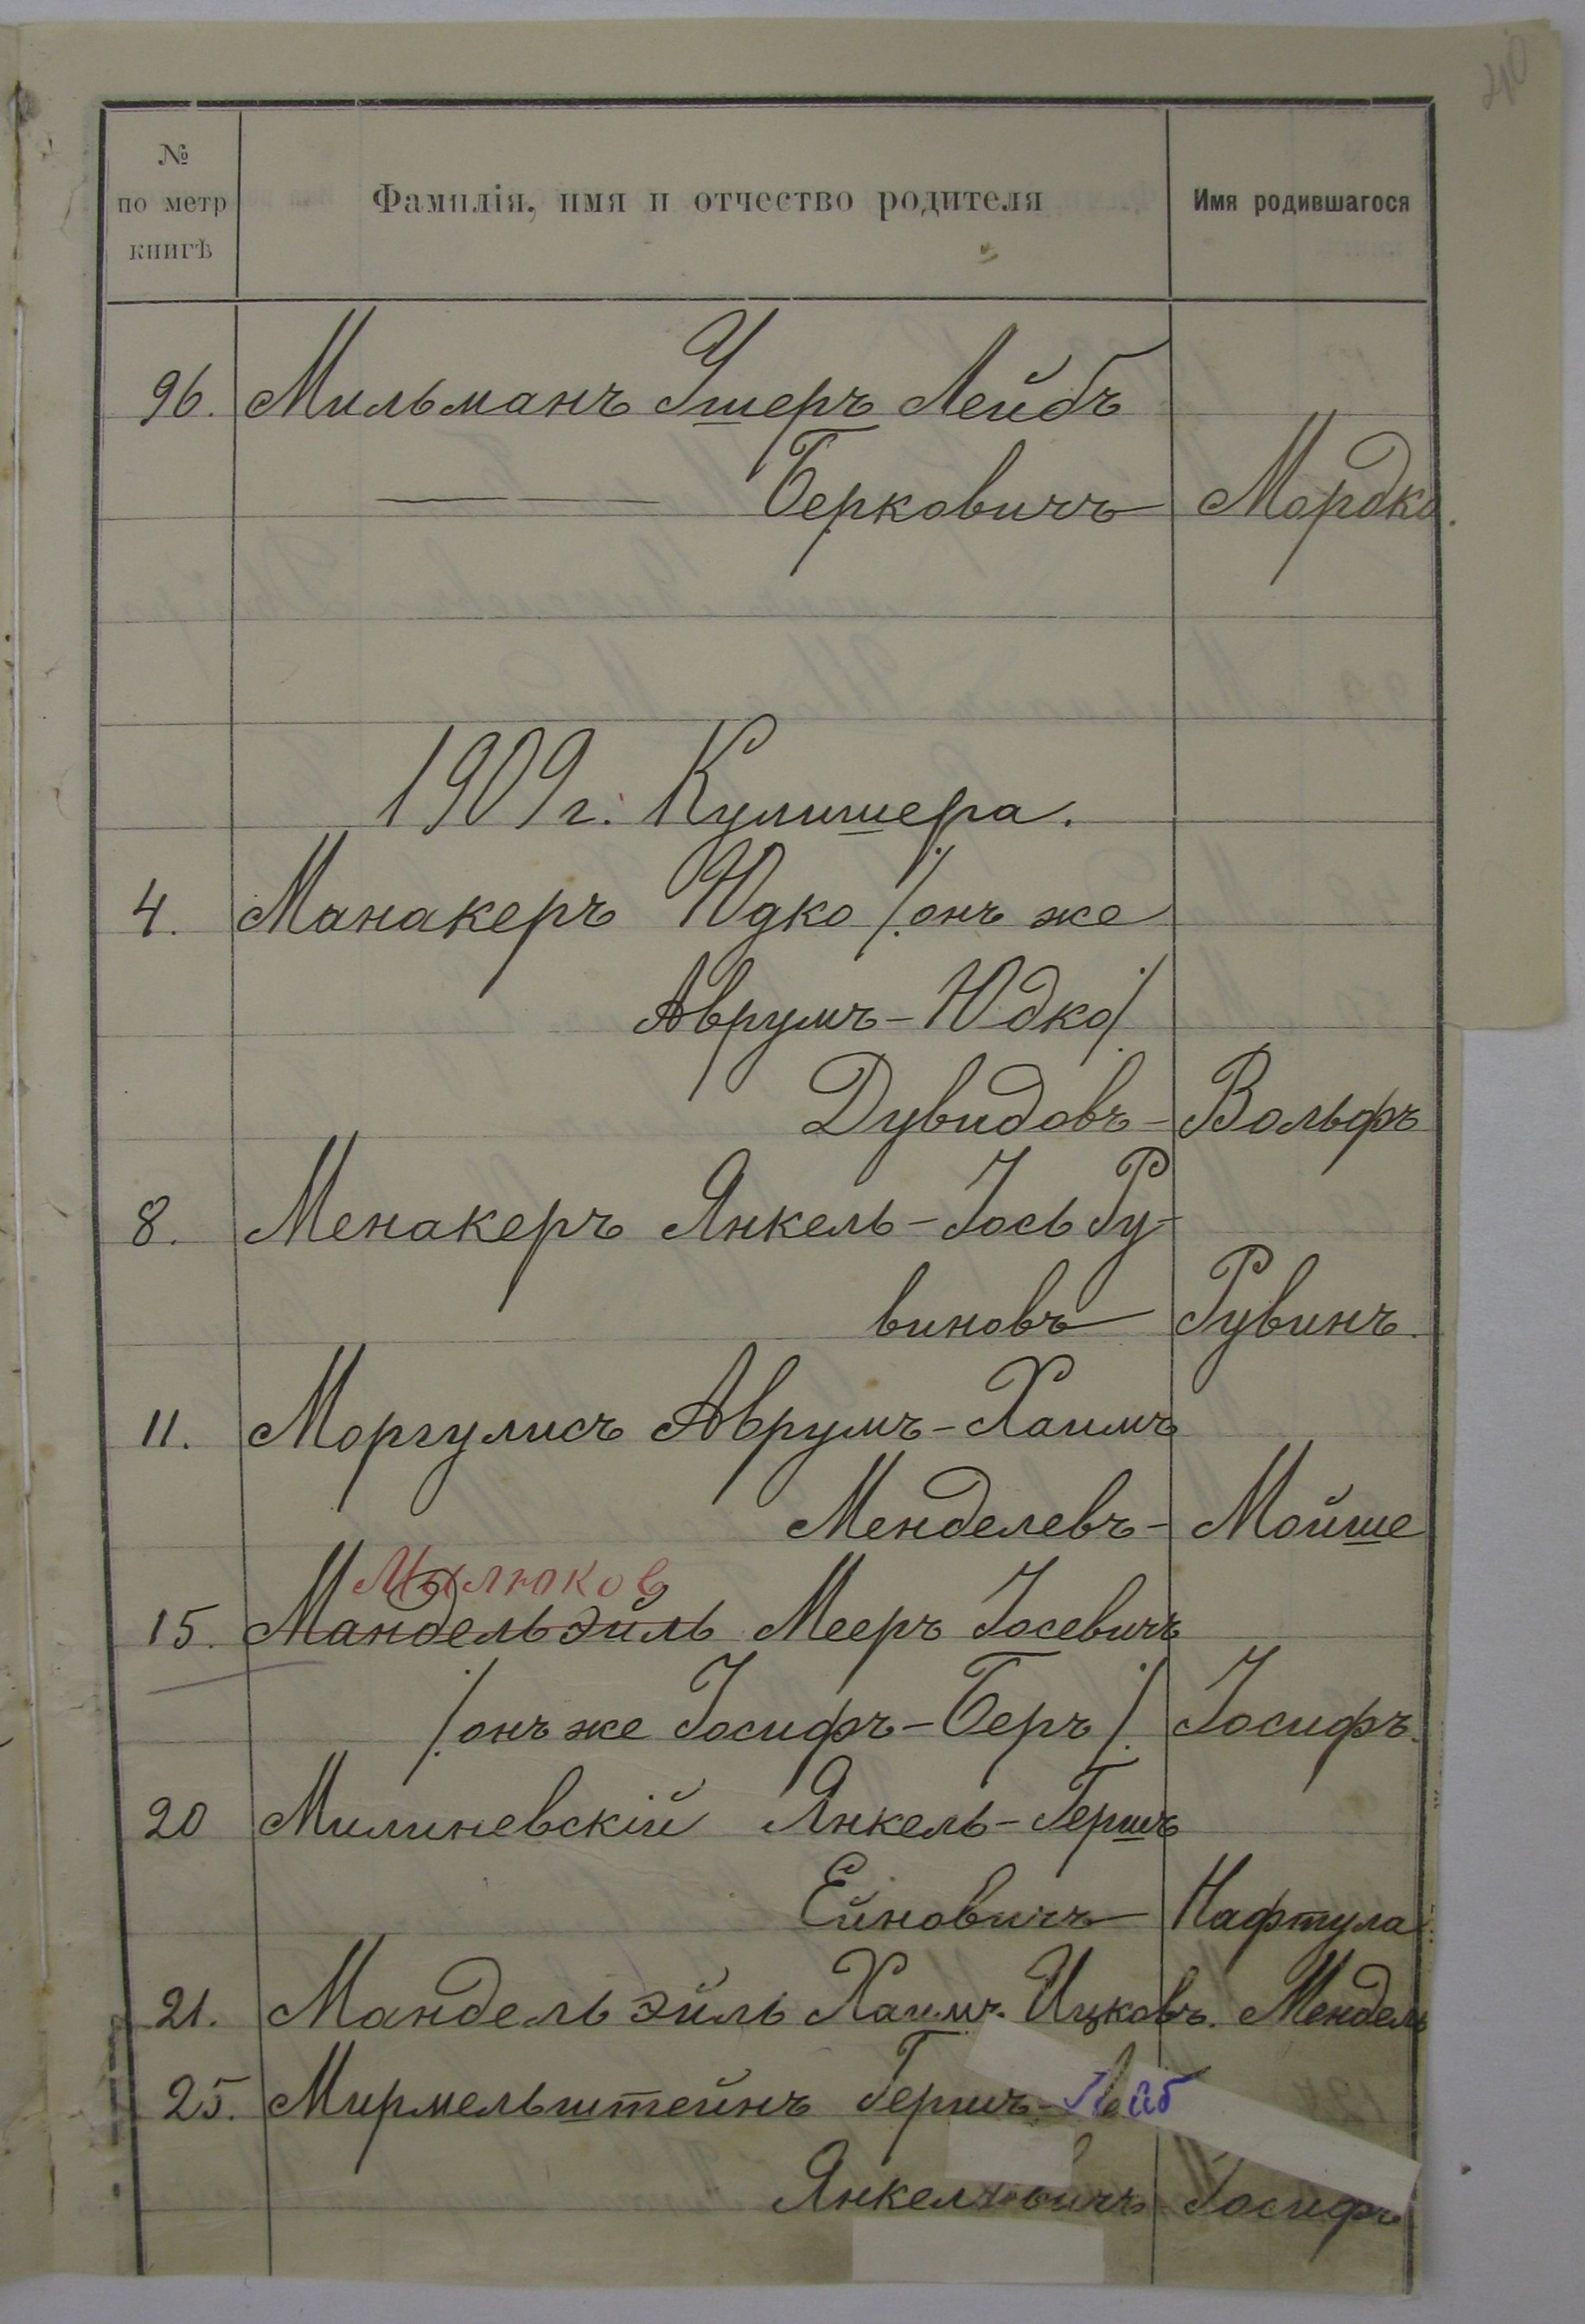 40
№
по метр
книгѣ
Фамилія, имя и отчество родителя
Имя родившагося
96. Мильманъ Ушеръ Лейбъ
Берковичъ Мордко.
1909 г. Кулишера.
4. Манакеръ Юдко /онъ же
Аврумъ-Юдко/
Дувидовъ- Вольфъ
8. Менакеръ Янкель-Іось Ру-
виновъ Рувинъ.
11. Моргулисъ Аврумъ-Хаимъ
Менделевъ- Мойше
Милюков
15. Мандельэйль Мееръ Іосевичъ
/онъ же Іосифъ-Беръ/. Іосифъ.
20 Милиневскій Янкель-Гершъ
Ейновичъ Нафтула
21. Мандельэйль Хаимъ Ицковъ. Мендель
25. Мирмельштейнъ Гершъ-Лейб
Янкелевичъ Іосифъ